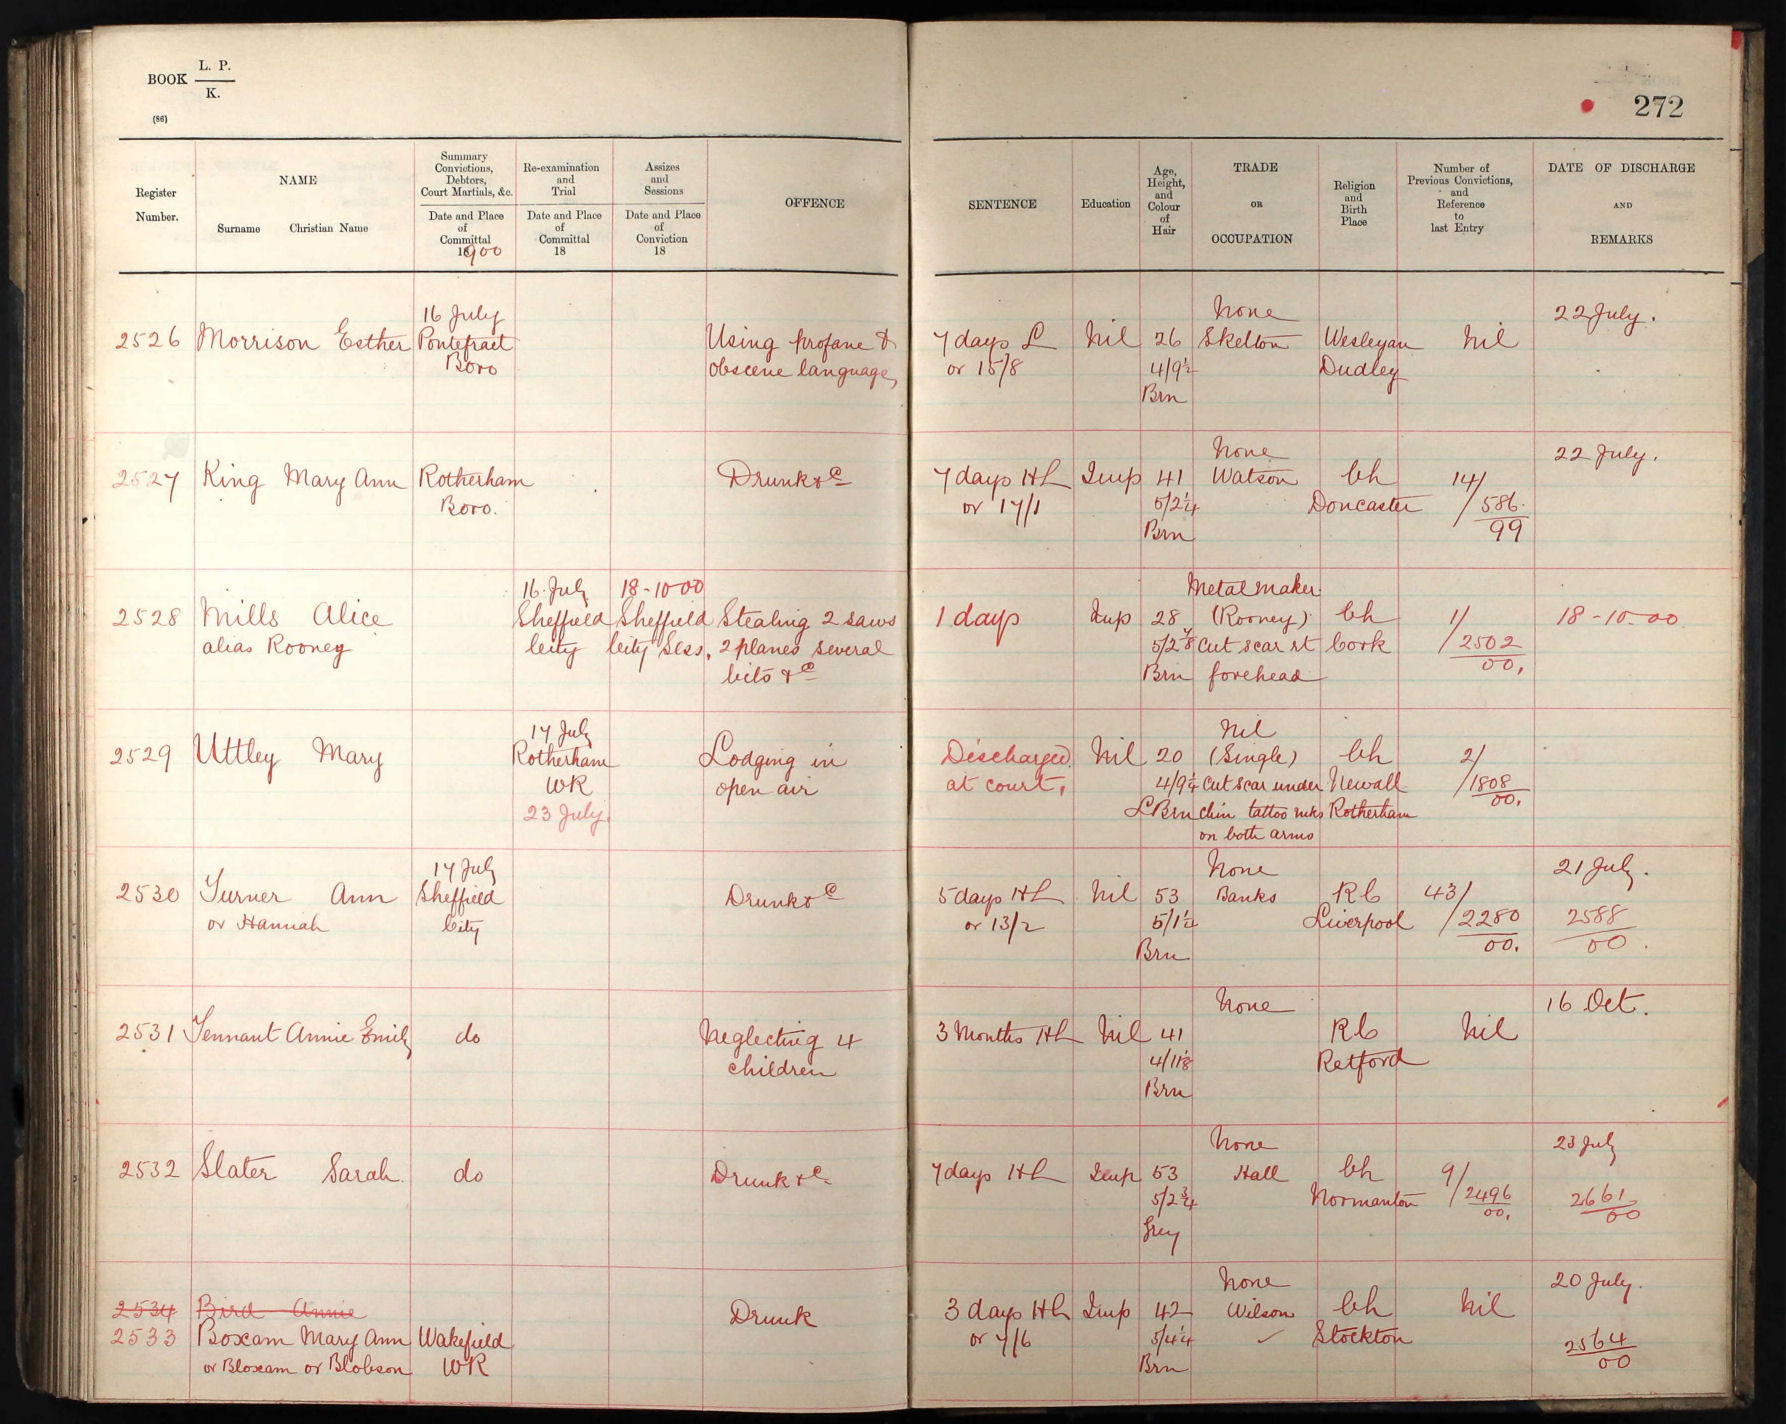 BOOK L. P.
K.
(86)
272
Register
Number.
NAME
Surname Christian Name
Summary
Convictions,
Debtors,
Court Martials, &c.
Date and Place
of
Committal
1900
Re-examination
and
Trial
Date and Place
of
Committal
18
Assizes
and
Sessions
Date and Place
of
Conviction
18
OFFENCE
SENTENCE
Education
Age,
Height,
and
Colour
of
Hair
TRADE
OR
OCCUPATION
Religion
and
Birth
Place
Number of
Previous Convictions,
and
Reference
to
last Entry
DATE OF DISCHARGE
AND
REMARKS
2526
Morrison Esther
16 July
Pontefract
Boro
Using profane &
obscene language,
7 days L
or 15/8
Nil
26
4/9½
Brn
None
Skelton
Wesleyan
Dudley
Nil
22 July.
2527
King Mary Ann
Rotherham
Boro.
Drunk &c
7 days HL
or 17/1
Imp
41
5/2¼
Brn
None
Watson
Ch
Doncaster
14/
/586.
99
22 July.
2528
Mills Alice
alias Rooney
16 July
Sheffield
City
18-10-00
Sheffield
City Sess.
Stealing 2 saws
2 planes several
bits &c
1 days
Imp
28
5/2⅞
Brn
Metal maker
(Rooney)
Cut scar rt
forehead
Ch
Cork
1/
/2502
00.
18-10-00.
2529
Uttley Mary
17 July
Rotherham
WR
23 July.
Lodging in
open air
Discharged
at court.
Nil
20
4/9¼
L Brn
Nil
(Single)
Cut scar under
chin tattoo mks
on both arms
Ch
Newall
Rotherham
2/
/1808
00.
2530
Turner Ann
or Hannah
17 July
Sheffield
City
Drunk &c
5 days HL
or 13/2
Nil
53
5/1¼
Brn
None
Banks
RC
Liverpool
43/
/2280
00.
21 July.
2588
00.
2531
Tennant Annie Emily
do
Neglecting 4
children
3 Months HL
Nil
41
4/11⅛
Brn
None
RC
Retford
Nil
16 Oct.
2532
Slater Sarah.
do
Drunk &c.
7 days HL
Imp
53
5/2¾
Grey
None
Hall
Ch
Normanton
9/
/2496
00.
23 July
2661
00
2534 Bird Annie
2533
Boxcam Mary Ann
or Bloxam or Blobson
Wakefield
WR
Drunk
3 days HL
or 7/6
Imp
42
5/4¼
Brn
None
Wilson
Ch
Stockton
Nil
20 July.
2564
00